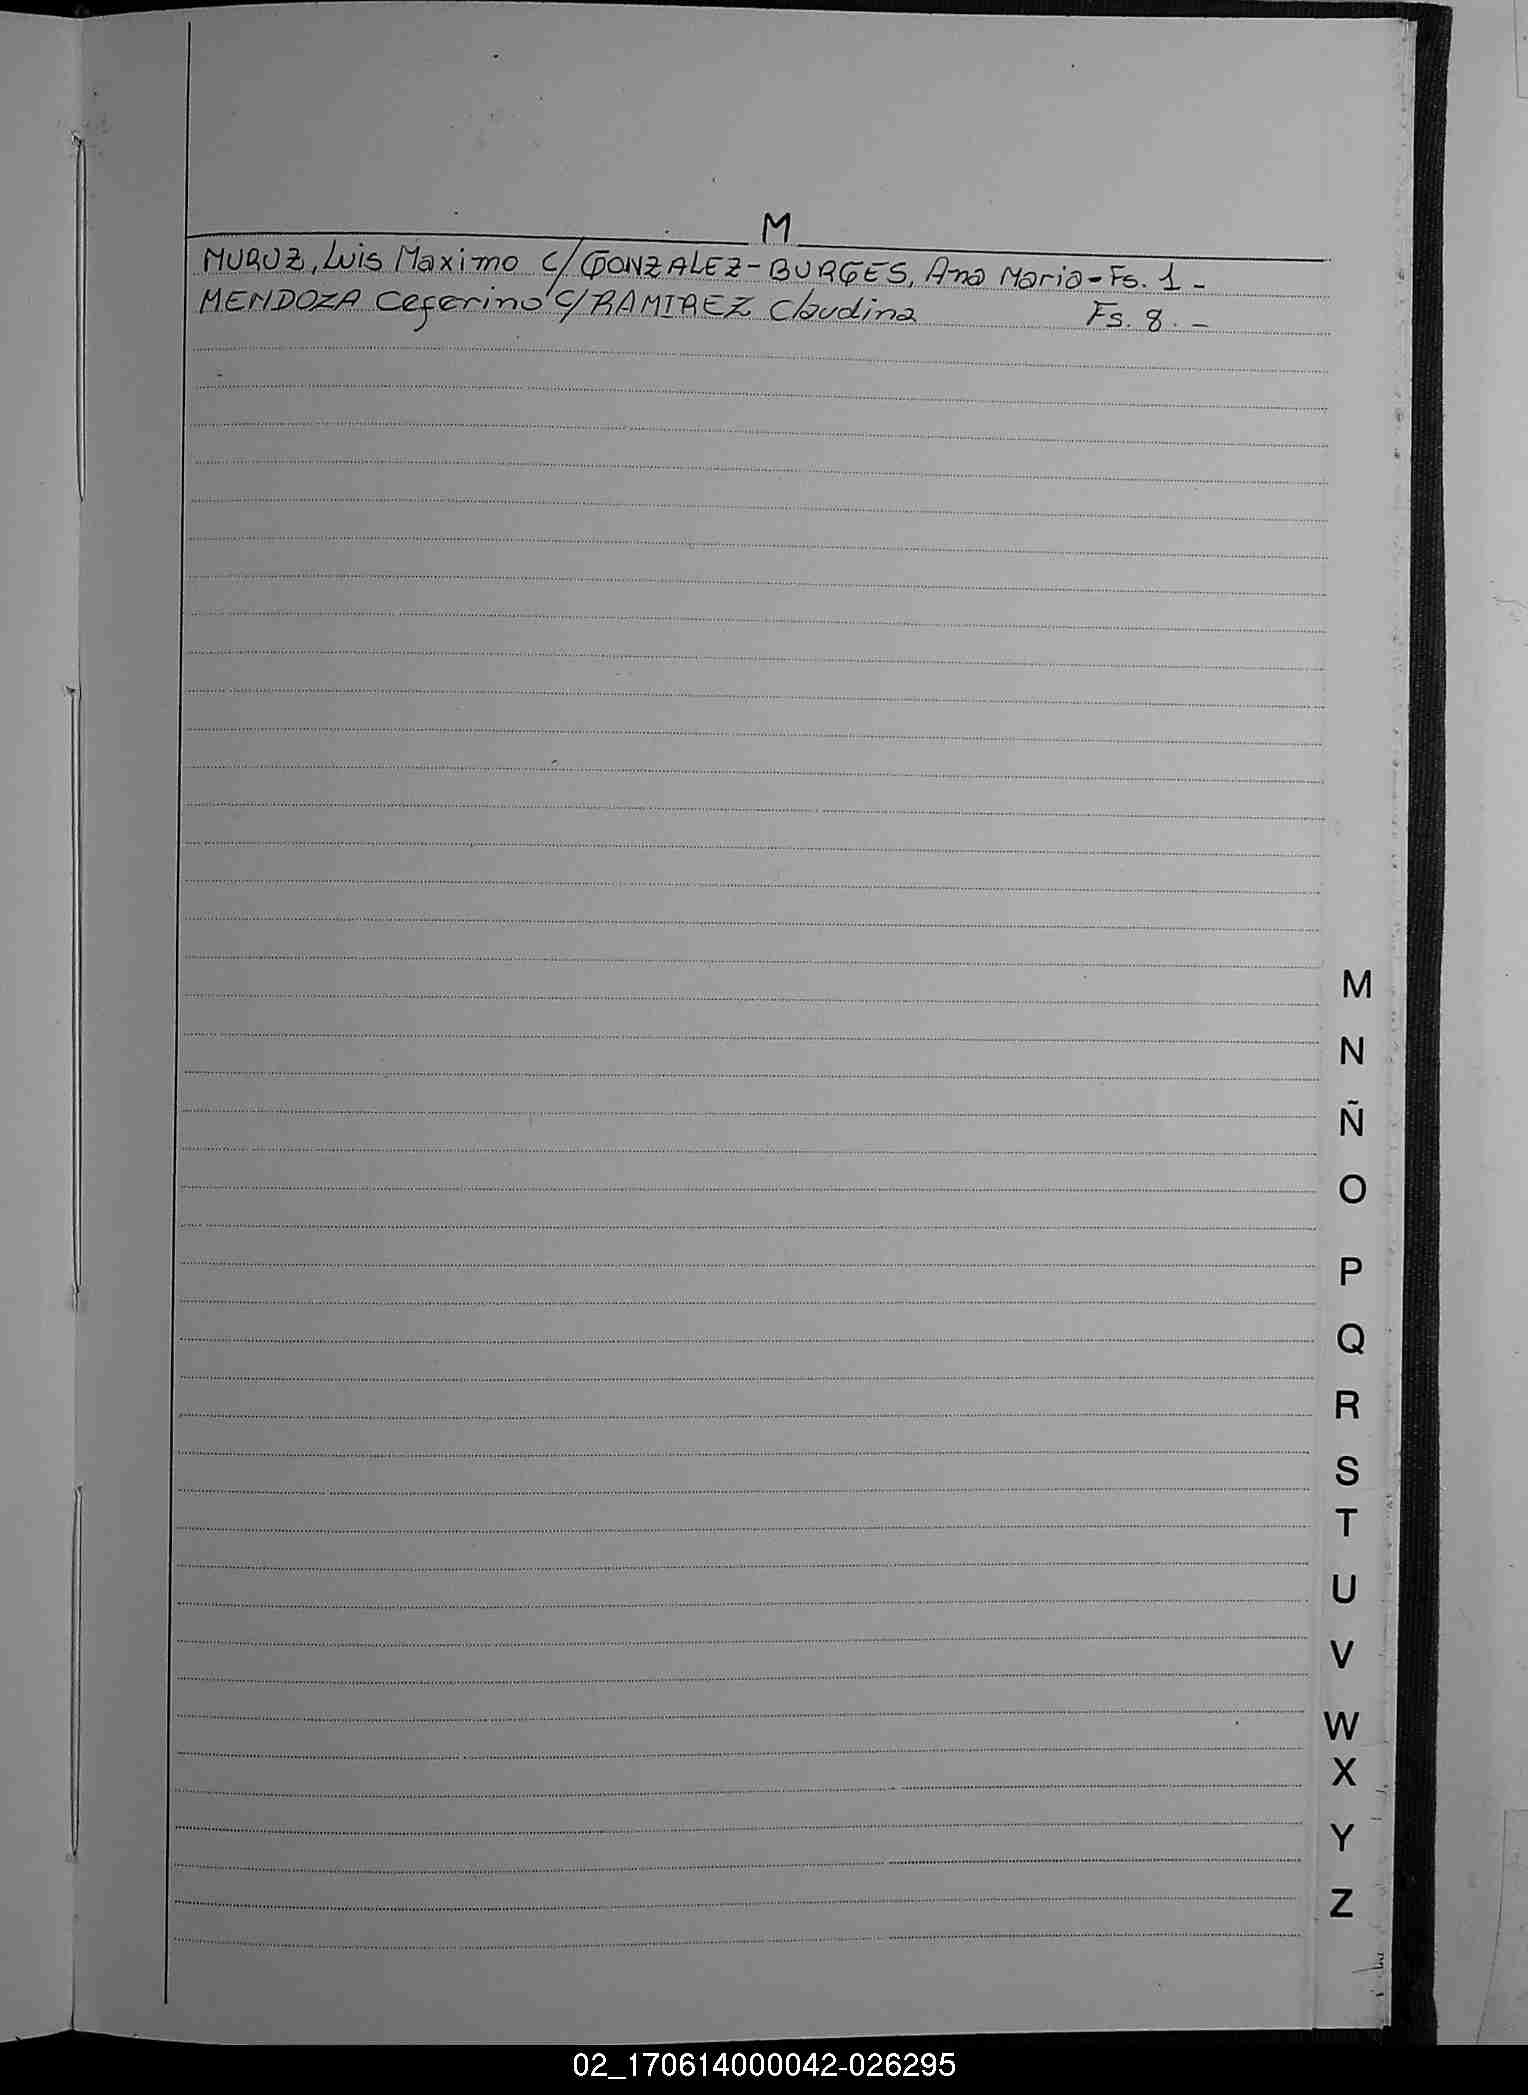 M
MURUZ, Luis Maximo C/ GONZALEZ-BURGES, Ana Maria - Fs. 1 -
MENDOZA Ceferino C/ RAMIREZ Claudina Fs. 8. -
M
N
Ñ
O
P
Q
R
S
T
U
V
W
X
Y
Z
02_170614000042-026295